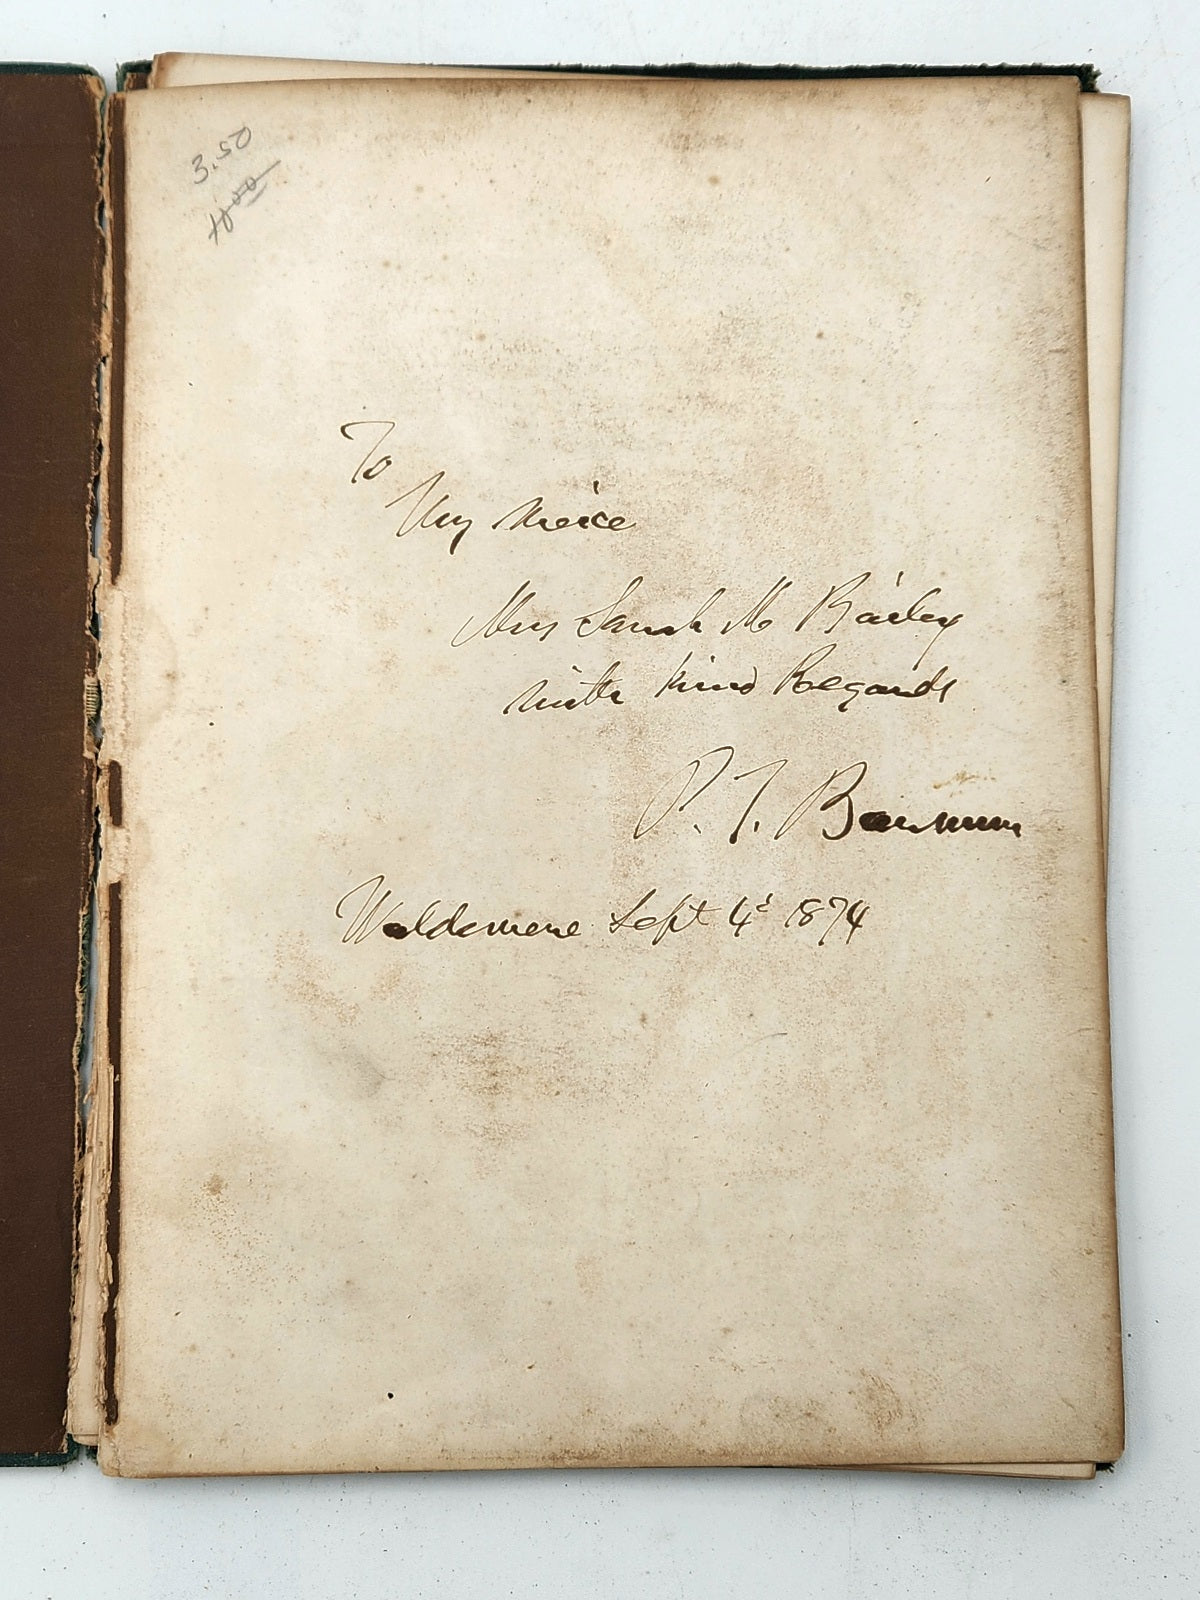 3.50
400
To
My neice
Mrs Sarah M Bailey
with kind Regards
P. T. Barnum
Waldemere Sept 4th 1874